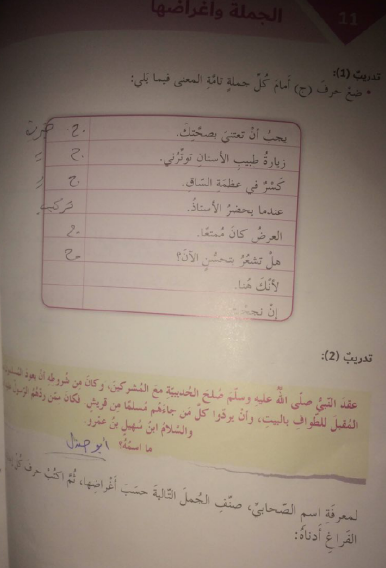 11
الجملة وأغراضها
تدريبٌ (1):
* ضعْ حرفَ (ج) أمامَ كُلِّ جملةٍ تامَّةِ المعنى فيما يَلي:
يجبُ أنْ تعتنيَ بصحَّتِكَ. ج
زيارةُ طبيبِ الأسنانِ توتّرُني. ج
كَسْرٌ في عظمَةِ السّاقِ. ج
عندما يحضرُ الأستاذُ.
العرضُ كانَ مُمتعًا. ج
هلْ تشعُرُ بتحسُّنٍ الآنَ؟ ج
لأنّكَ هُنا.
إنْ
تدريبٌ (2):
عقدَ النّبيُّ صلّى اللهُ عليهِ وسلّمَ صُلحَ الحُديبيّةِ معَ المُشركينَ، وكانَ مِن شروطِهِ أنْ يعودَ
المُقبلَ للطّوافِ بالبيتِ، وأنْ يردّوا كُلَّ مَن جاءَهُم مُسلمًا مِن قريشٍ، فكانَ ممّن ردَّهُمُ الرّسولُ
والسّلامُ ابنُ سُهيلِ بنِ عمْرٍو.
ما اسمُهُ؟ ابو جندل
لمعرفةِ اسمِ الصّحابيِّ، صنّفِ الجُملَ التّاليةَ حسَبَ أغراضِها، ثُمَّ اكتُبْ حرفَ
الفَراغِ أدناهُ: